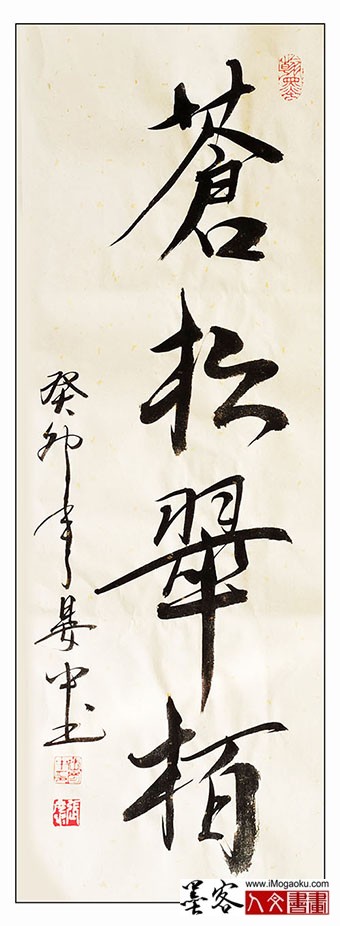 蒼松翠栢
癸卯年晏中玉
墨客
www.iMogaoku.com
人文書畫